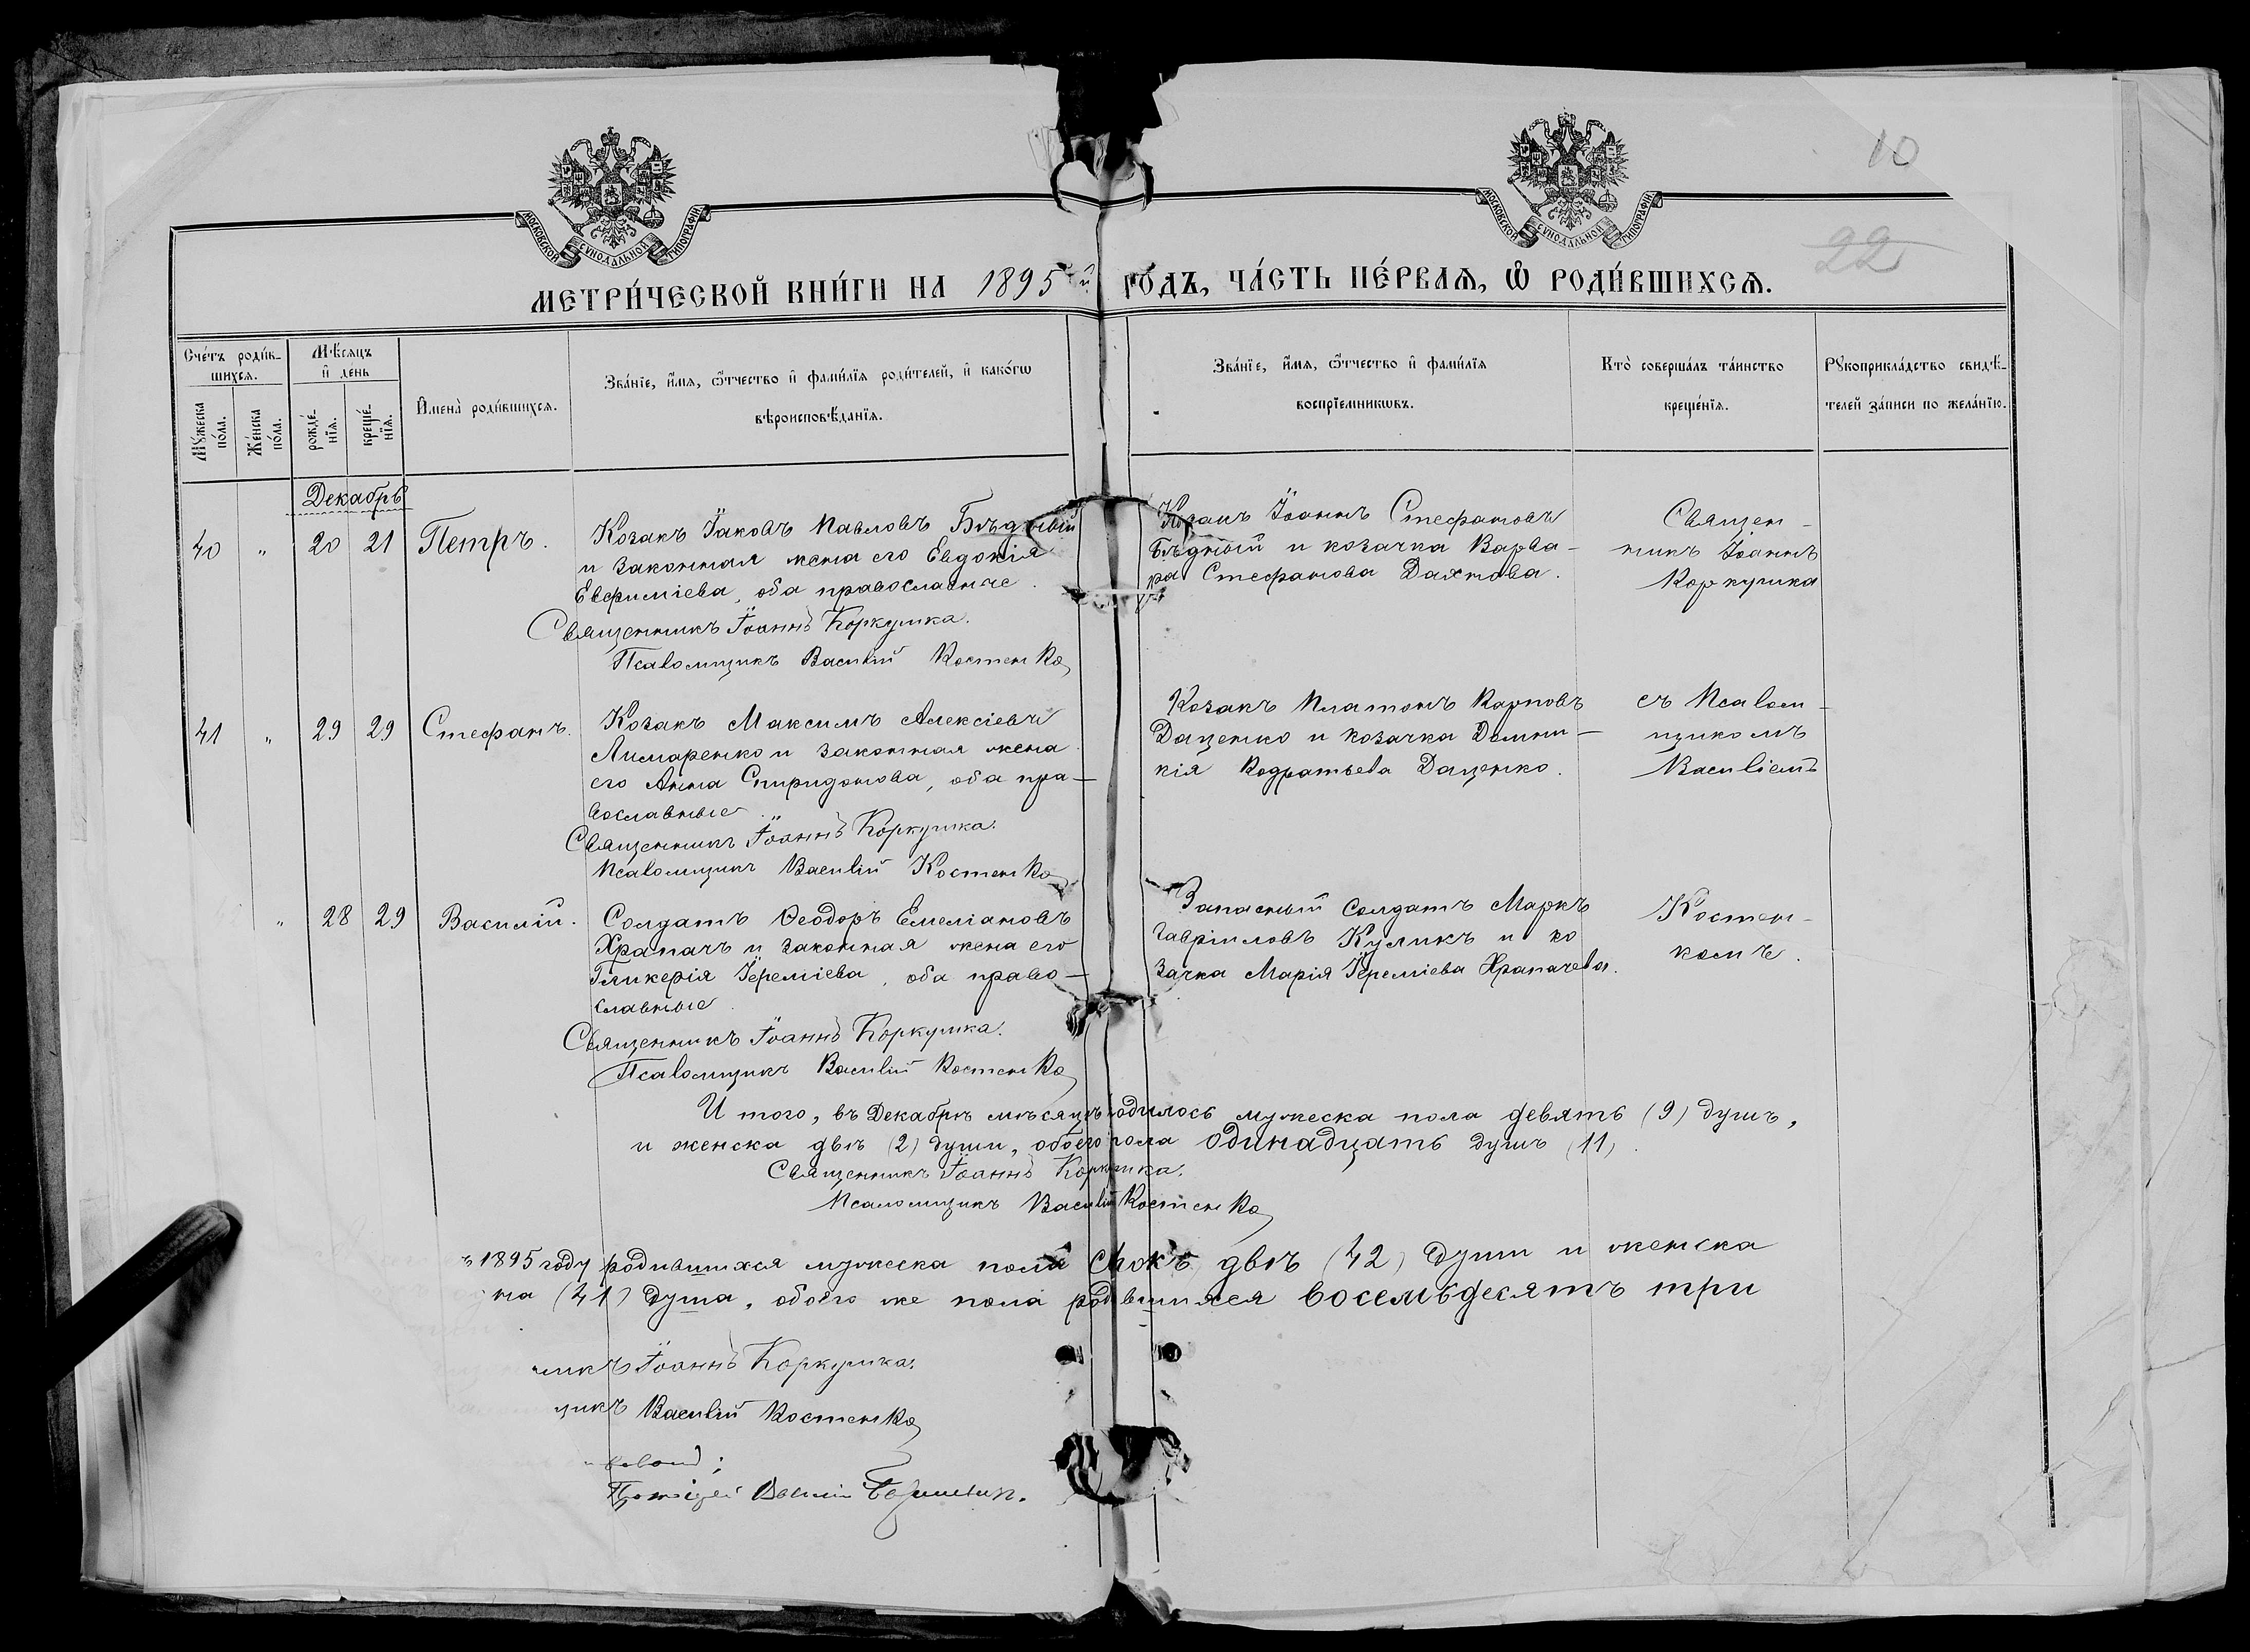 10
22
МОСКОВСКОЙ СѴНОДАЛЬНОЙ ТИПОГРАФІИ
МОСКОВСКОЙ СѴНОДАЛЬНОЙ ТИПОГРАФІИ
МЕТРИ́ЧЕСКОЙ КНИ́ГИ НА 1895й ГО́ДЪ, ЧА́СТЬ ПЕ́РВАѦ, Ѡ҆ РОДИ́ВШИХСѦ.
Сче́тъ роди́в-
шихсѧ.
Мꙋ́жеска по́ла.
Же́нска по́ла.
Мѣ́сѧцъ
и҆ де́нь
рожде́-
нїѧ.
креще́-
нїѧ.
И҆мена̀ роди́вшихсѧ.
Зва́нїе, и҆́мѧ, ѻ҆́тчество и҆ фамы́лїѧ роди́телей, и҆ како́гѡ
вѣроисповѣ́данїѧ.
Зва́нїе, и҆́мѧ, ѻ҆́тчество и҆ фами́лїѧ
воспрїе́мникѡвъ.
Кто̀ соверша́лъ та́инство
креще́нїѧ.
Рꙋкоприкла́дство свидѣ́-
телей за́писи по жела́нїю.
Декабрь
40 " 20 21 Петръ.
Козакъ Іаковъ Павловъ Бѣдный
и законная жена его Евдокія
Евфиміева, оба православные.
Священникъ Іоаннъ Коркушка.
Псаломщикъ Василій Костенко
Козакъ Іоаннъ Стефановъ
Бѣдный и козачка Варва-
ра Стефанова Дахнова.
Священ-
никъ Іоаннъ
Коркушка
41 " 29 29 Стефанъ.
Козакъ Максимъ Алексіевъ
Лимаренко и законная жена
его Анна Спиридонова, оба пра-
вославные
Священникъ Іоаннъ Коркушка.
Псаломщикъ Василій Костенко
Козакъ Платонъ Карповъ
Даценко и козачка Домни-
кія Кодратьева Даценко.
съ Псалом-
щикомъ
Василіемъ
" 28 29 Василій.
Солдатъ Ѳеодоръ Емеліановъ
Храпачъ и законная жена его
Гликерія Іереміева, оба право-
славные
Священникъ Іоаннъ Коркушка.
Псаломщикъ Василій Костенко
Запасный солдатъ Маркъ
Гавріиловъ Куликъ и ко
зачка Марія Іереміева Храпачева.
Костен-
комъ.
И того, въ Декабрѣ мѣсяцѣ родилось мужеска пола девять (9) душъ,
и женска двѣ (2) души, обоего пола одинадцать душъ (11).
Священникъ Іоаннъ Коркушка.
Псаломщикъ Василій Костенко
ъ 1895 году родившихся мужеска пола сорокъ двѣ (42) души и женска
на (41) душа, обоего же пола родившихся восемьдесятъ три
никъ Іоаннъ Коркушка.
щикъ Василій Костенко